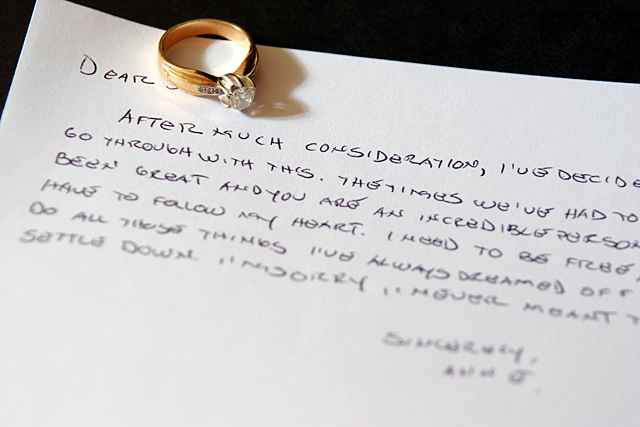 DEAR
AFTER MUCH CONSIDERATION, I'VE DECIDE
GO THROUGH WITH THIS. THE TIMES WE'VE HAD TO
BEEN GREAT AND YOU ARE AN INCREDIBLE PERSON
HAVE TO FOLLOW MY HEART. I NEED TO BE FREE
DO ALL THOSE THINGS I'VE ALWAYS DREAMED OF
SETTLE DOWN. I'M SORRY, I NEVER MEANT T
SINCERELY,
ANN